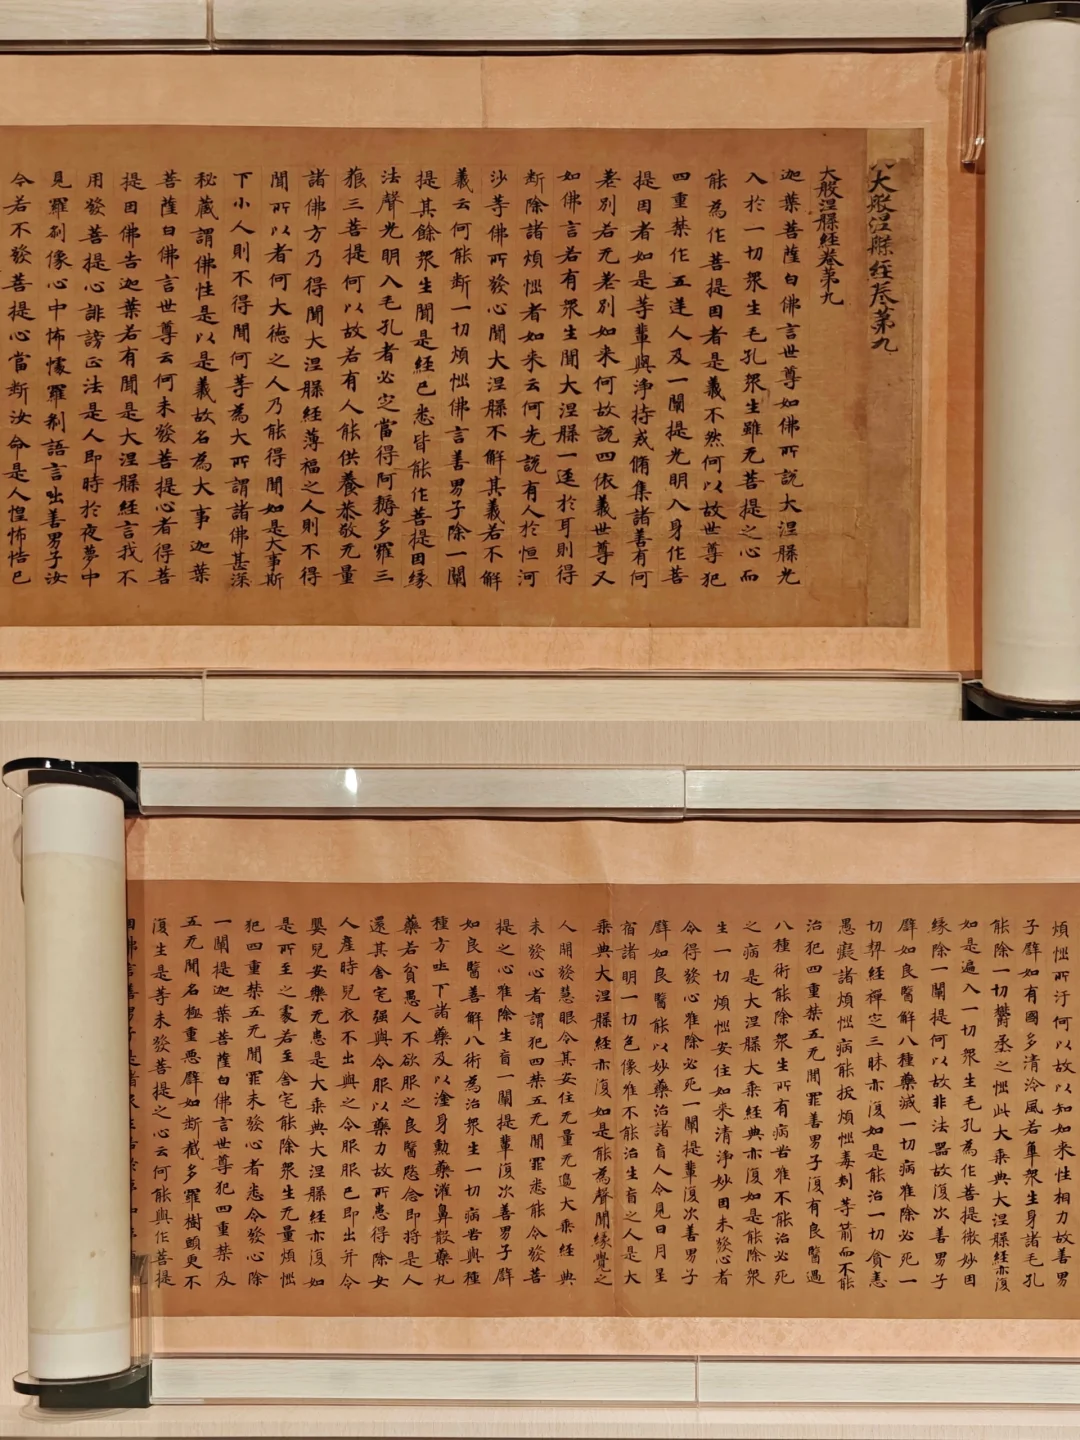 大般涅槃經卷第九
大般涅槃經卷第九
迦葉菩薩白佛言世尊如佛所說大涅槃光
入於一切眾生毛孔眾生雖无菩提之心而
能為作菩提因者是義不然何以故世尊犯
四重禁作五逆人及一闡提光明入身作菩
提因者如是等輩與淨持戒脩集諸善有何
差別若无差別如來何故說四依義世尊又
如佛言若有眾生聞大涅槃一逕於耳則得
斷除諸煩惱者如來云何先說有人於恒河
沙等佛所發心聞大涅槃不解其義若不解
義云何能斷一切煩惱佛言善男子除一闡
提其餘眾生聞是經已悉皆能作菩提因緣
法聲光明入毛孔者必定當得阿耨多羅三
藐三菩提何以故若有人能供養恭敬无量
諸佛方乃得聞大涅槃經薄福之人則不得
聞所以者何大德之人乃能得聞如是大事斯
下小人則不得聞何等為大所謂諸佛甚深
秘藏謂佛性是以是義故名為大事迦葉
菩薩白佛言世尊云何未發菩提心者得菩
提因佛告迦葉若有聞是大涅槃經言我不
用發菩提心誹謗正法是人即時於夜夢中
見羅剎像心中怖懅羅剎語言咄善男子汝
今若不發菩提心當斷汝命是人惶怖悟已
煩惱所汙何以故以知如來性相力故善男
子譬如有國多清泠風若有眾生身諸毛孔
能除一切欝烝之惱此大乘典大涅槃經亦復
如是遍入一切眾生毛孔為作菩提微妙因
緣除一闡提何以故非法器故復次善男子
譬如良醫解八種藥滅一切病唯除必死一
切契經禪定三昧亦復如是能治一切貪恚
愚癡諸煩惱病能拔煩惱毒刺等箭而不能
治犯四重禁五无間罪善男子復有良醫過
八種術能除眾生所有病苦唯不能治必死
之病是大涅槃大乘經典亦復如是能除眾
生一切煩惱安住如來清淨妙因未發心者
令得發心唯除必死一闡提輩復次善男子
譬如良醫能以妙藥治諸盲人令見日月星
宿諸明一切色像唯不能治生盲之人是大
乘典大涅槃經亦復如是能為聲聞緣覺之
人開發慧眼令其安住无量无邊大乘經典
未發心者謂犯四禁五无間罪悉能令發菩
提之心唯除生盲一闡提輩復次善男子譬
如良醫善解八術為治眾生一切病苦與種
種方吐下諸藥及以塗身勳藥灌鼻散藥丸
藥若貧愚人不欲服之良醫愍念即將是人
還其舍宅强與令服以藥力故所患得除女
人產時兒衣不出與之令服服已即出并令
嬰兒安樂无患是大乘典大涅槃經亦復如
是所至之處若至舍宅能除眾生无量煩惱
犯四重禁五无間罪未發心者悉令發心除
一闡提迦葉菩薩白佛言世尊犯四重禁及
五无間名極重惡譬如斷截多羅樹頭更不
復生是等未發菩提之心云何能與作菩提
因佛言善男子是諸眾生若於夢中